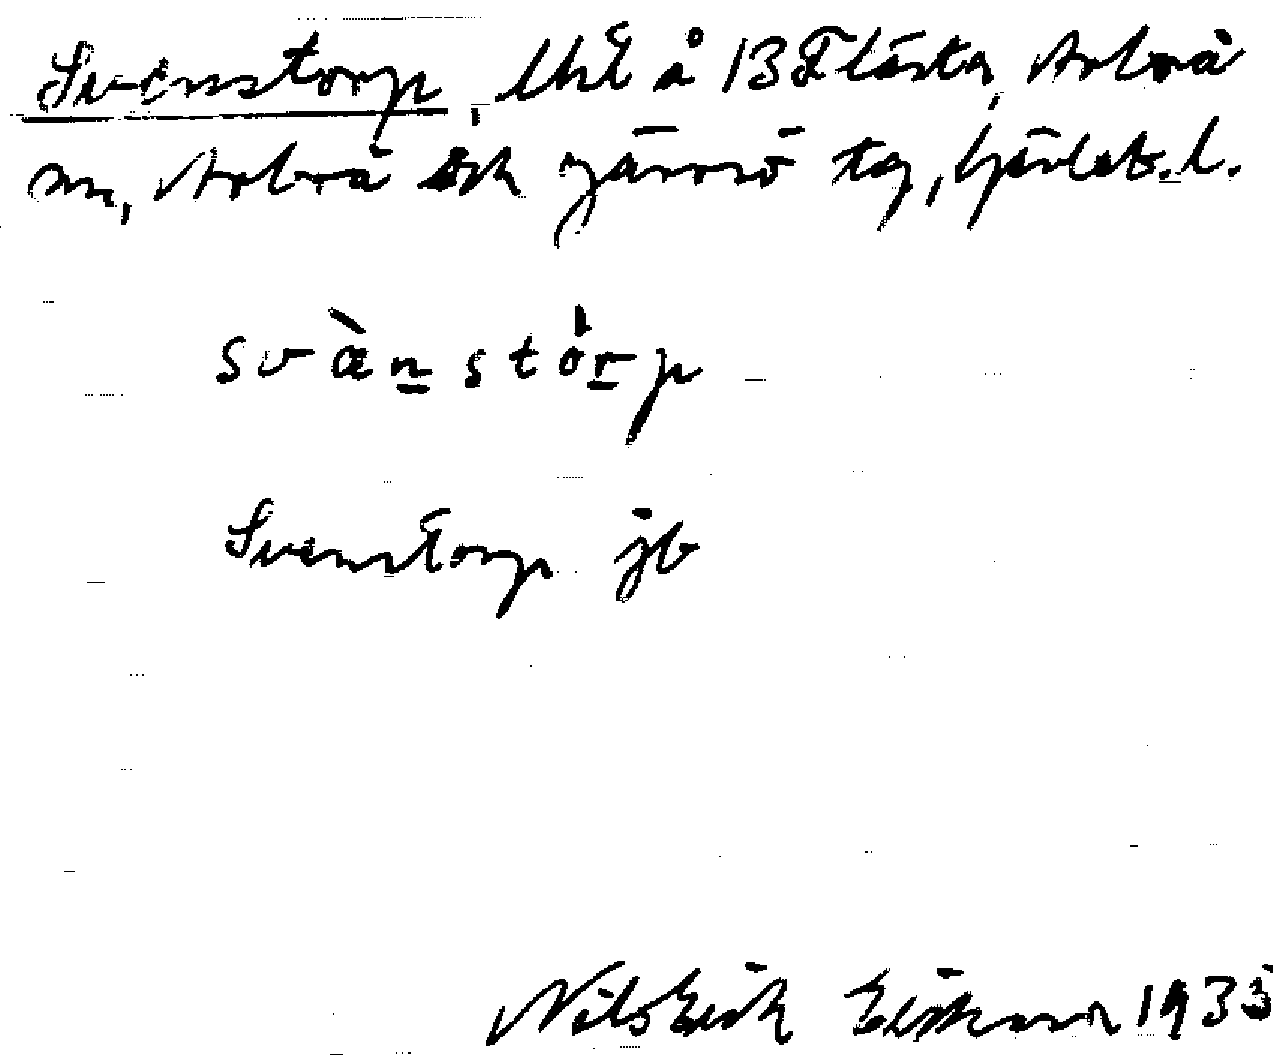 Svenstorp, lht å 13 Flästa, Arbrå
sn, Arbrå och Järvsö tg, Gävleb. l.
svæ̀n̲stór̲p
Svenstorp jb
Nils Erik Eriksson 1935